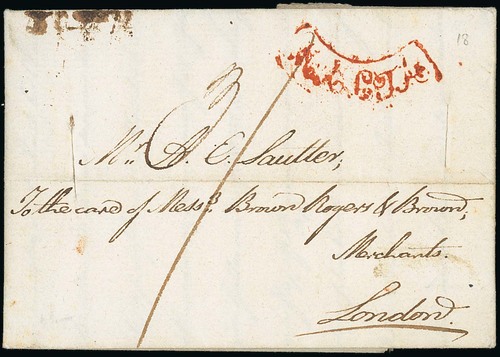 18
Mr. A. E. Saulter,
To the care of Messrs. Brown Rogers & Brown,
Merchants.
London.